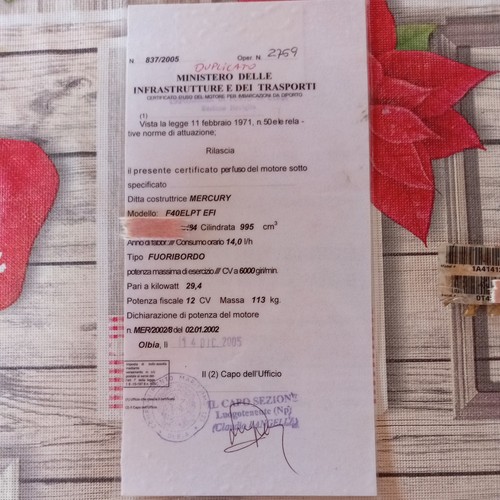 N 837/2005 Oper N. 2759
DUPLICATO
MINISTERO DELLE
INFRASTRUTTURE E DEI TRASPORTI
CERTIFICATO D'USO DEL MOTORE PER IMBARCAZIONI DA DIPORTO
(1)
Vista la legge 11 febbraio 1971, n.50 e le rela-
tive norme di attuazione;
Rilascia
il presente certificato per l'uso del motore sotto
specificato
Ditta costruttrice MERCURY
Modello: F40ELPT EFI
94 Cilindrata 995 cm3
Anno di fabbr. /// Consumo orario 14,0 l/h
Tipo FUORIBORDO
potenza massima di esercizio /// CV a 6000 giri/min.
Pari a kilowatt 29,4
Potenza fiscale 12 CV Massa 113 kg.
Dichiarazione di potenza del motore
n. MER/2002/8 del 02.01.2002
Olbia, li 14 DIC. 2005
Il (2) Capo dell'Ufficio
(2) Capo dell'Ufficio
IL CAPO SEZIONE
Luogotenente (Np)
1A4141